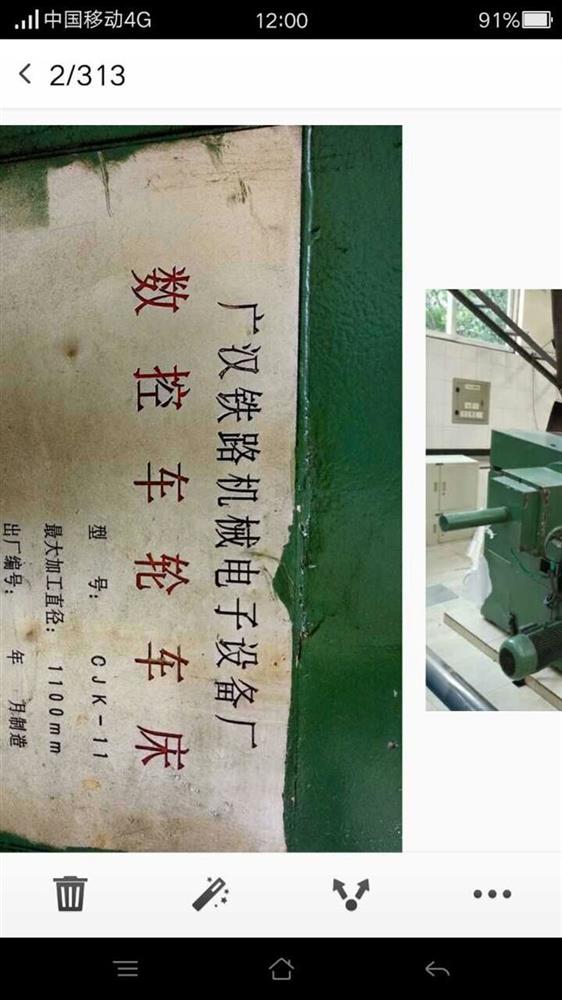 中国移动4G
12:00
91%
2/313
广汉铁路机械电子设备厂
数控车轮车床
型 号： CJK-11
最大加工直径：1100mm
出厂编号： 年 月制造